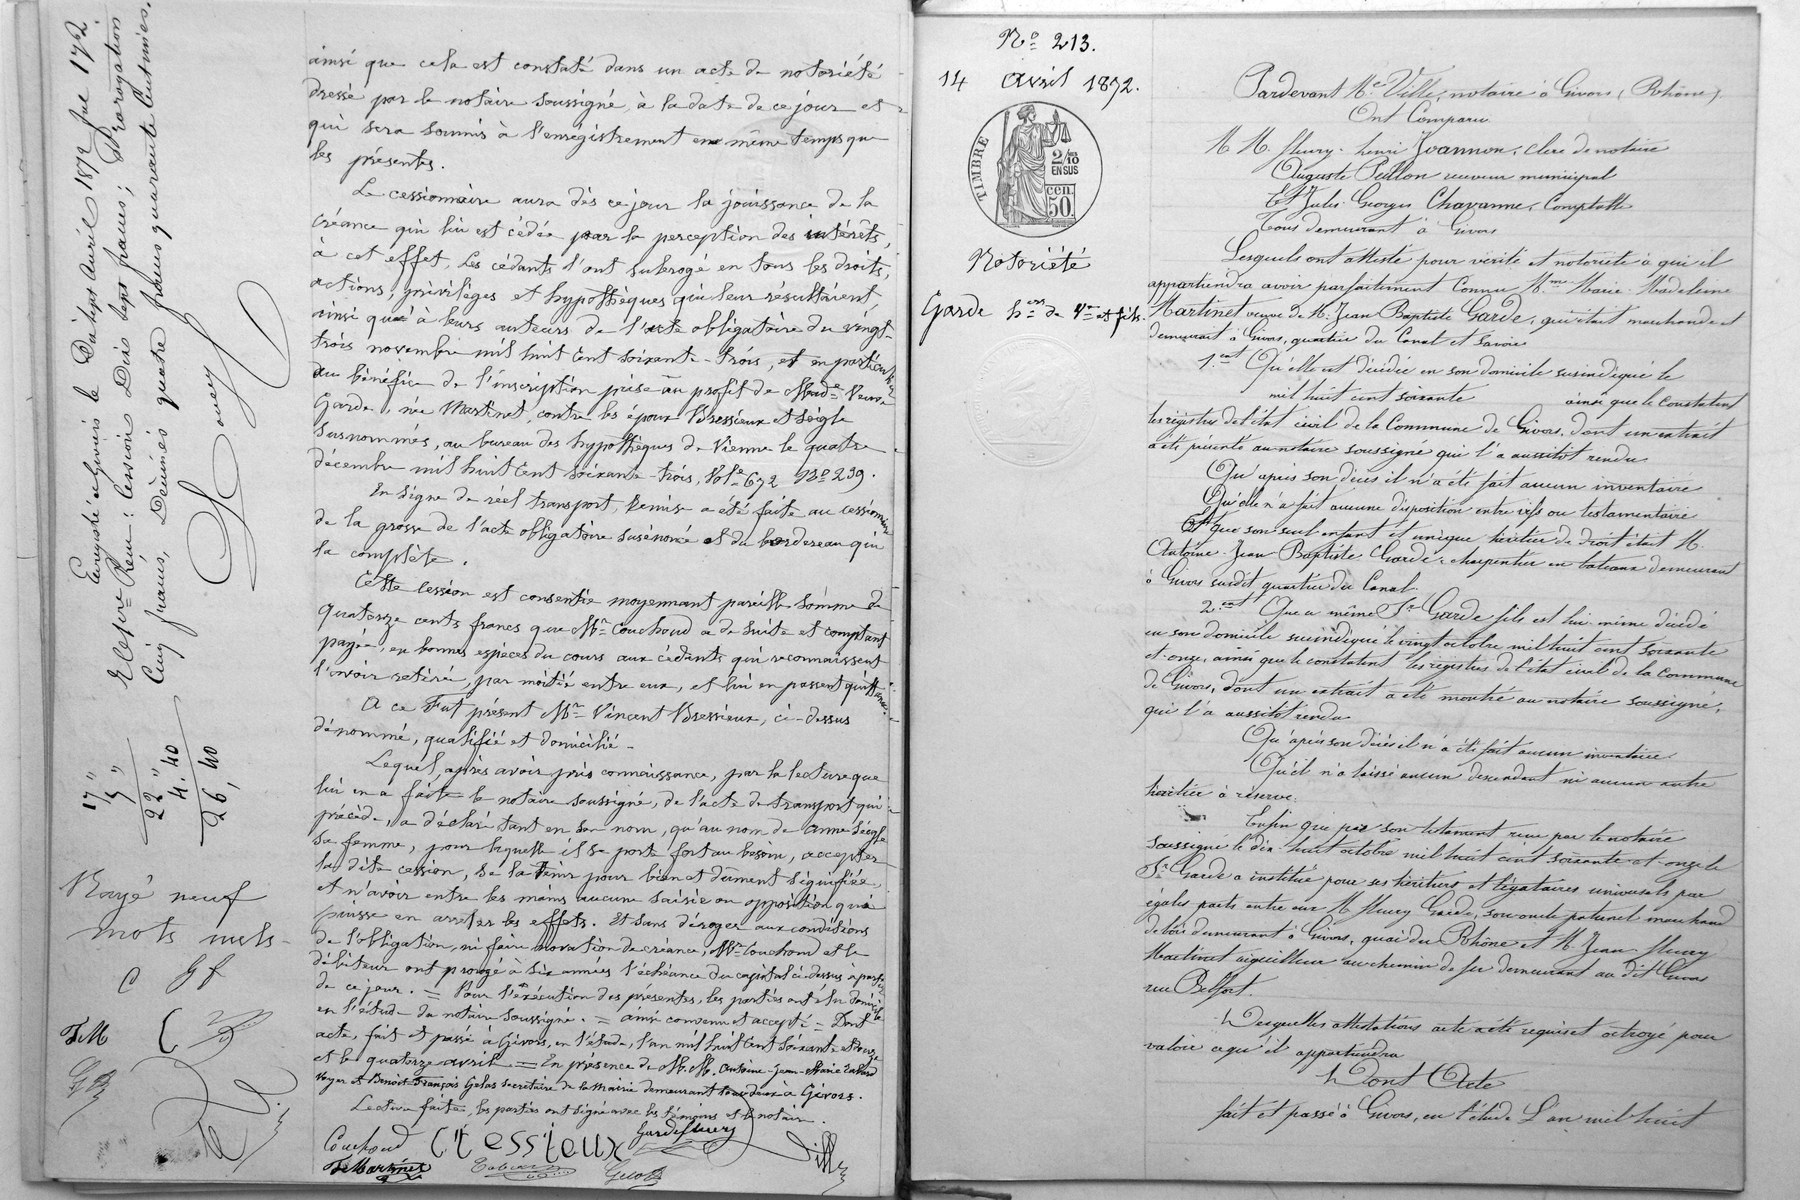 Enregistré à Givors le Dix sept Avril 1872 fol 172
Reçu: Cession Dix sept francs; Prorogation
Cinq francs, Décimes quatre francs quarante centimes.
17 "
5 "
22 "
4.40
26,40
Rayé neuf
mots nuls
C Gf
F.M
ainsi que cela est constaté dans un acte de notoriété
dressé par le notaire soussigné, à la date de ce jour et
qui sera soumis à l'enregistrement en même temps que
les présentes.
Le cessionnaire aura dès ce jour la jouissance de la
créance qui lui est cédée par la perception des intérêts,
à cet effet, Les cédants l'ont subrogé en tous les droits,
actions, privilèges et hypothèques qui leur résultaient,
ainsi qu'à leurs auteurs de l'acte obligatoire du vingt-
trois novembre mil huit cent soixante-trois, et en particulier
au bénéfice de l'inscription prise au profit de Made Veuve
Garde, née Martinet, contre les époux Bressieux et Séigle
susnommés, au bureau des hypothèques de Vienne le quatre
décembre mil huit cent soixante-trois, Vol. 672 No 239.
En signe de réel transport, Remise a été faite au cessionnaire
de la grosse de l'acte obligatoire susénoncé et du bordereau qui
la complète.
Cette cession est consentie moyennant pareille somme de
quatorze cents francs que Mr Couchoud a de suite et comptant
payée, en bonnes espèces du cours aux cédants qui reconnaissent
l'avoir retiré, par moitié entre eux, et lui en passent quittance.
A ce Fut présent Mr Vincent Bressieux, ci-dessus
dénommé, qualifié et domicilié.
Lequel, après avoir pris connaissance, par la lecture que
lui en a faite le notaire soussigné, de l'acte de transport qui
précède, a déclaré tant en son nom, qu'au nom de Anne Séigle
sa femme, pour laquelle il se porte fort au besoin, accepter
la dite cession, se la tenir pour bien et dûment signifiée,
et n'avoir entre les mains aucune saisie ou opposition qui
puisse en arrêter les effets. Et sans déroger aux conditions
de l'obligation, ni faire novation de créance, Mr Couchoud et le
débiteur ont prorogé à six années l'échéance du capital ci-dessus à partir
de ce jour. = Pour l'exécution des présentes, les parties ont élu domicile
en l'étude du notaire soussigné. = Ainsi convenu et accepté = Dont
acte, fait et passé à Givors, en l'étude, l'an mil huit cent soixante et douze
et le quatorze avril = En présence de M.M. Antoine-Jean-Marie
Voyer et Benoit-François Gelas secrétaire de la Mairie demeurant tous deux à Givors.
Lecture faite, les parties ont signé avec les témoins et le notaire.
Couchoud Bressieux Garde fleury Ville
F. Martinet Gelas
No 213.
14 Avril 1872.
TIMBRE
2/10
EN SUS
cen.
50.
Notoriété
Garde hers de Vve et fils.
Pardevant Me Ville, notaire à Givors (Rhône)
Ont Comparu
M.M. fleury-henri Joannon, clerc de notaire
Auguste Peillon receveur municipal
Et Jules Georges Chavanne, Comptable
Tous demeurant à Givors
Lesquels ont attesté pour vérité et notoriété à qui il
appartiendra avoir parfaitement connu Mme Marie Madeleine
Martinet veuve de M. Jean Baptiste Garde, qui était marchande et
demeurait à Givors, quartier du Canal et savoir
1.ent Qu'elle est décédée en son domicile susindiqué le
mil huit cent soixante ainsi que le constatent
les registres de l'état civil de la Commune de Givors, dont un extrait
a été présenté au notaire soussigné qui l'a aussitôt rendu
Qu'après son décès il n'a été fait aucun inventaire
Qu'elle n'a fait aucune disposition entre vifs ou testamentaire
Et que son seul enfant et unique héritier de droit était M.
Antoine-Jean-Baptiste Garde, charpentier en bateaux demeurant
à Givors susdit quartier du Canal.
2.ent Que ce même Sr Garde fils est lui même décédé
en son domicile susindiqué le vingt octobre mil huit cent soixante
et onze, ainsi que le constatent les registres de l'état civil de la commune
de Givors, dont un extrait a été montré au notaire soussigné,
qui l'a aussitôt rendu
Qu'après son décès il n'a été fait aucun inventaire
Qu'il n'a laissé aucun descendant ni aucun autre
héritier à réserve.
Enfin que par son testament reçu par le notaire
soussigné le dix-huit octobre mil huit cent soixante et onze le
Sr Garde a institué pour ses héritiers et légataires universels par
égales parts entre eux M. fleury Garde, son oncle paternel marchand
de bois demeurant à Givors, quai du Rhône et M. Jean fleury
Martinet aiguilleur au chemin de fer demeurant au dit Givors
rue Belfort.
Desquelles attestations acte a été requis et octroyé pour
valoir ce qu'il appartiendra
Dont Acte
fait et passé à Givors, en l'étude L'an mil huit